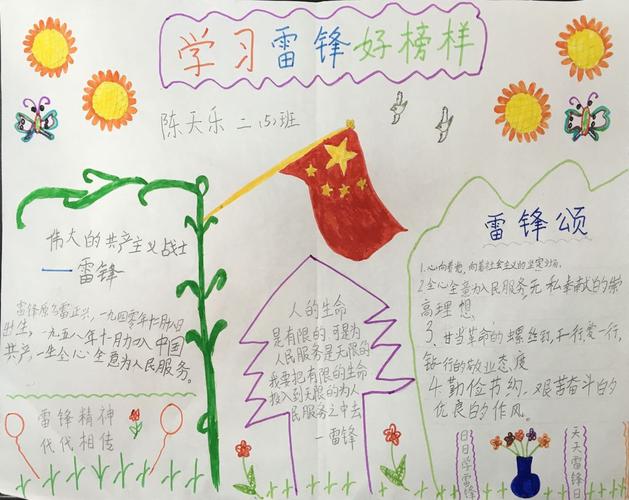 学习雷锋好榜样
陈天乐 二(5)班
伟大的共产主义战士
一雷锋
雷锋原名雷正兴,一九四零年十月八日
出生,一九五八年十月加入中国
共产,一生全心全意为人民服务。
雷锋精神
代代相传
人的生命
是有限的,可是为
人民服务是无限的
我要把有限的生命
投入到无限的为人
民服务之中去
一雷锋
雷锋颂
1.心向着党,向着社会主义的坚定立场,
2.全心全意为人民服务无私奉献的崇
高理想
3、甘当革命的螺丝钉,干一行爱一行,
钻一行的敬业态度
4.勤俭节约、艰苦奋斗的
优良的作风。
日日学雷锋
天天雷锋日